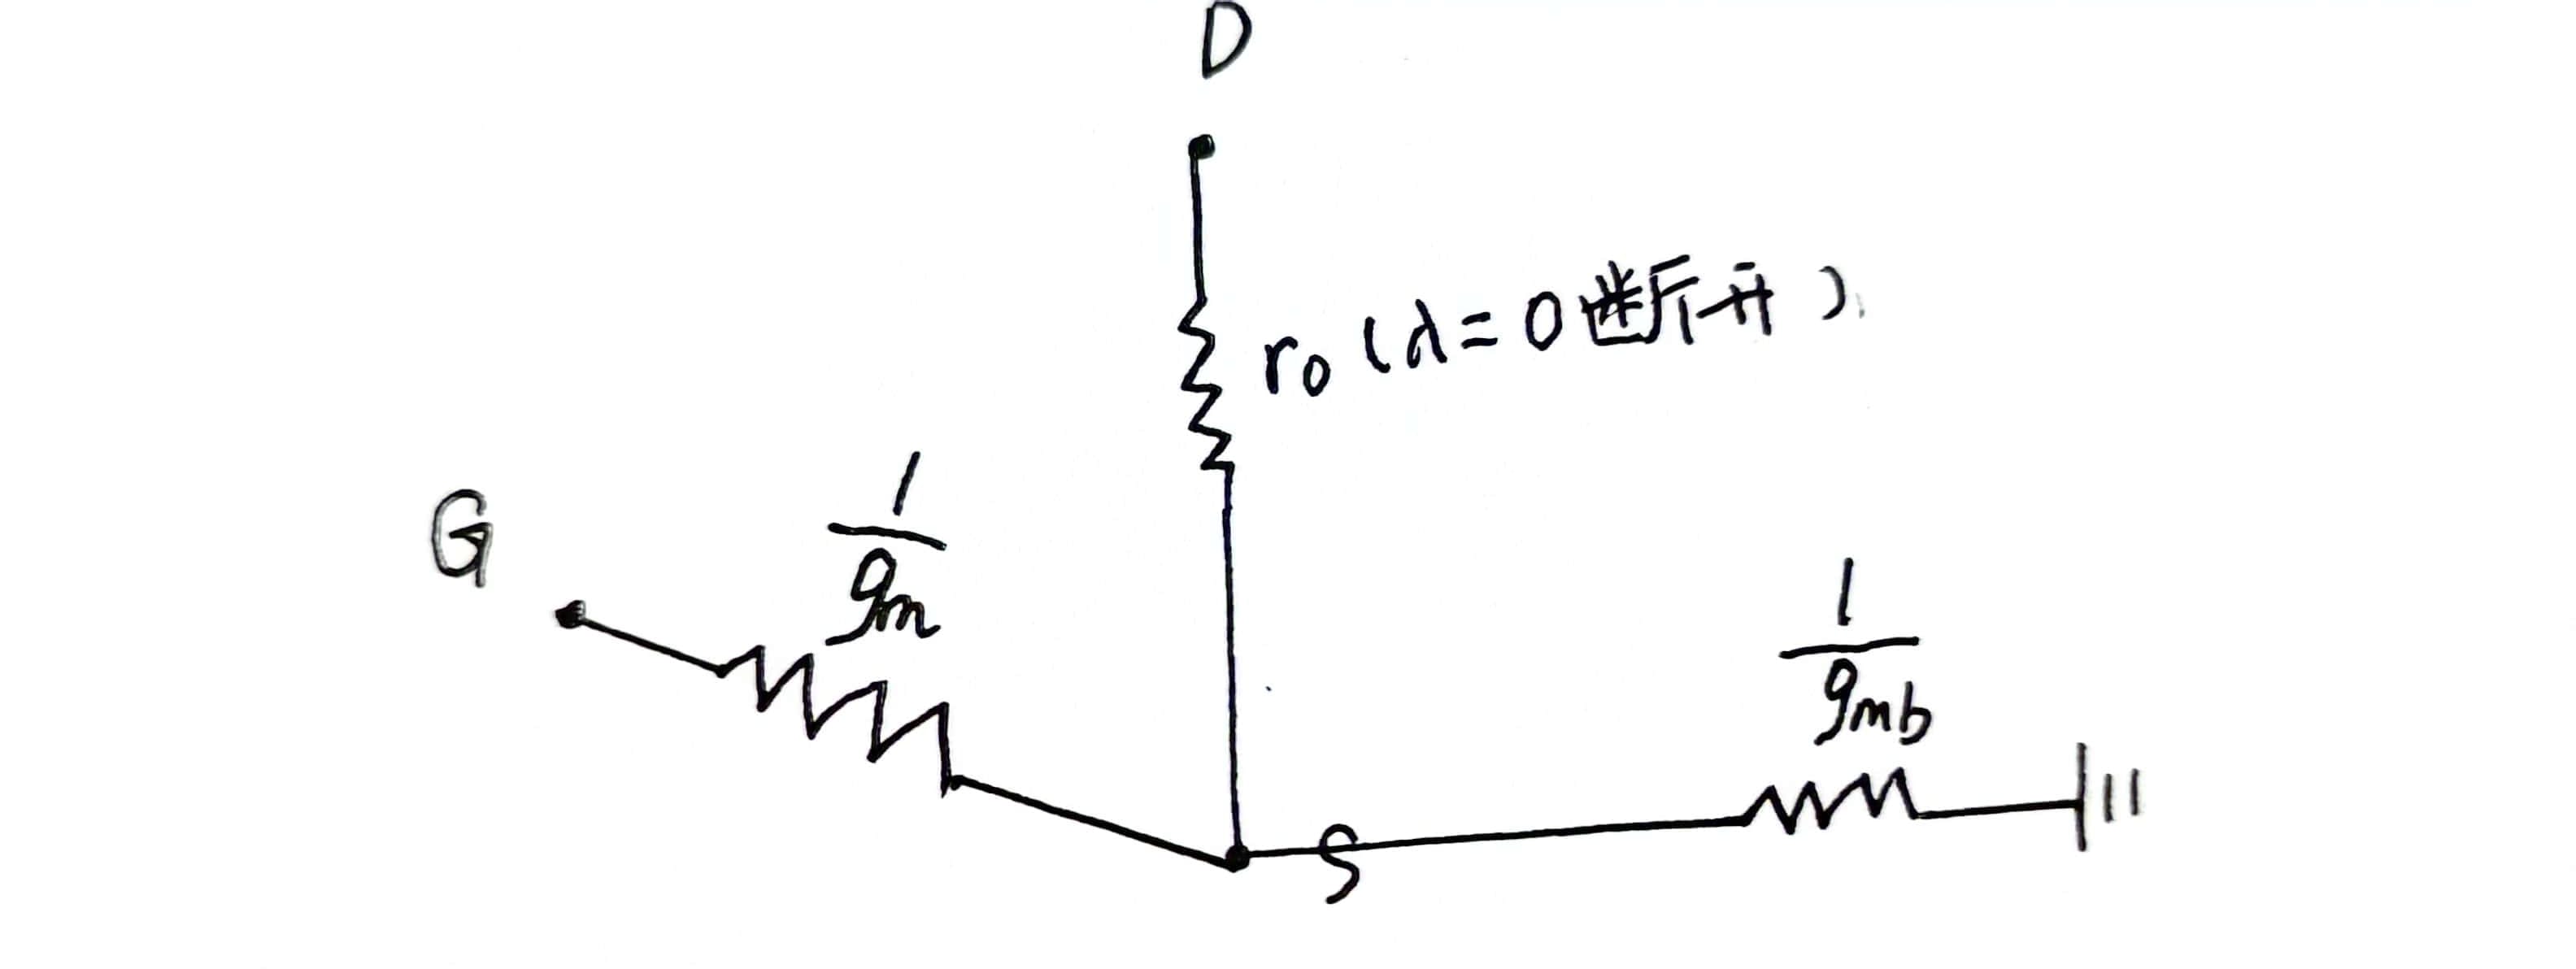 D
r₀ (λ=0断开)
G
1/gm
1/gmb
S